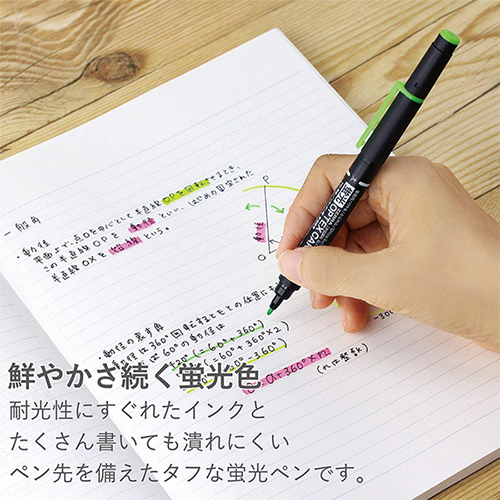 一般角
・動径
平面上で、点Oを中心として半直線OPを回転させるとき、
この半直線OPを 動径 といい、はじめの固定された
半直線OXを 始線 という。
P
動径
O
動径の表す角
は360°回転するともとの位置に
は60°の動径は
(=60°+360°×2)
-360°)
α+360°×n
(nは整数)
OPTEX CA
鮮やかさ続く蛍光色
耐光性にすぐれたインクと
たくさん書いても潰れにくい
ペン先を備えたタフな蛍光ペンです。